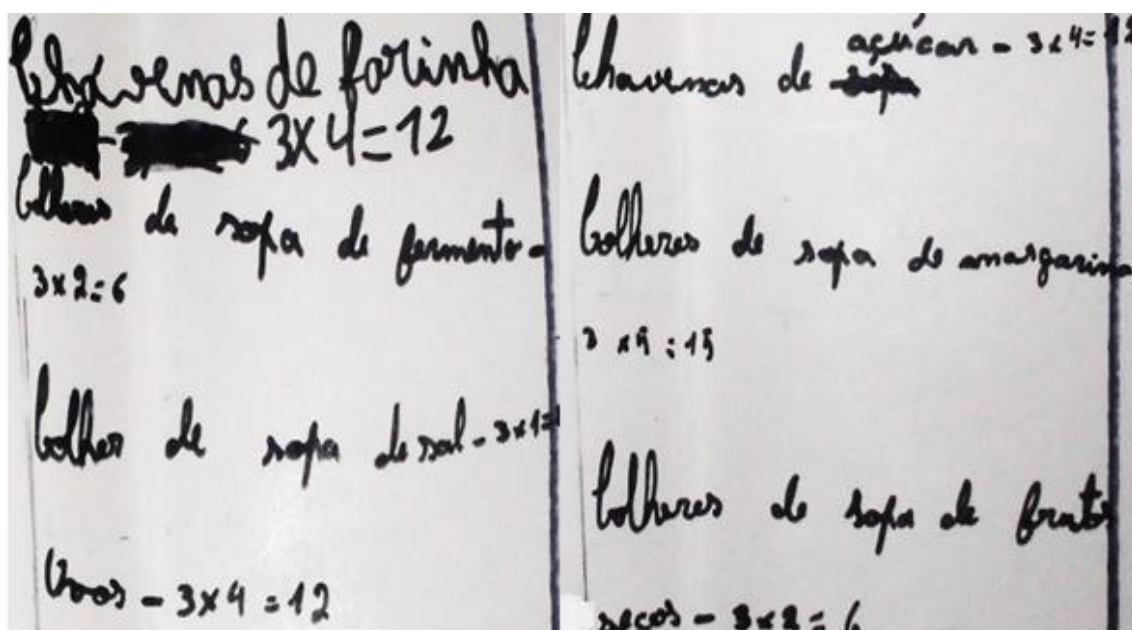 Chávenas de farinha
3x4=12
Colheres de sopa de fermento -
3x2=6
Colher de sopa de sal - 3x1=
Ovos - 3x4=12
açúcar - 3x4=12
Chavenas de
Colheres de sopa de margarina
3x5=15
Colheres de sopa de frutos
secos - 3x2=6